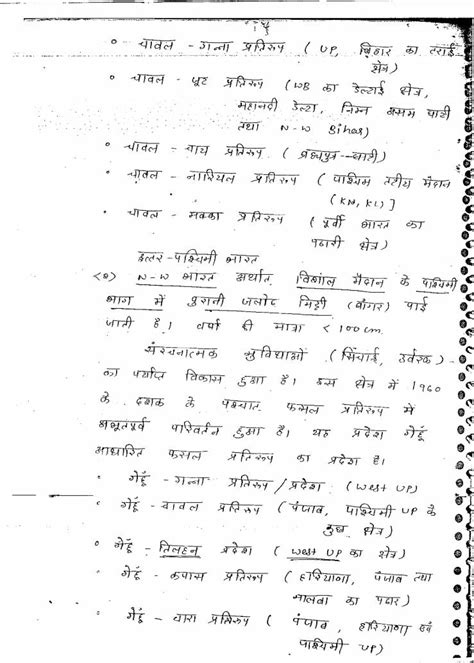 ० चावल - गन्ना प्रतिरूप (UP, बिहार का तराई
क्षेत्र)
० चावल - जूट प्रतिरूप (WB का डेल्टाई क्षेत्र,
महानदी डेल्टा, निम्न असम घाटी
तथा N-W Bihar)
० चावल - चाय प्रतिरूप (ब्रह्मपुत्र-घाटी)
० चावल - नारियल प्रतिरूप (पश्चिम तटीय मैदान
(KN, KL)]
० चावल - मक्का प्रतिरूप (पूर्वी भारत का
पठारी क्षेत्र)
उत्तर-पश्चिमी भारत
N-W भारत अर्थात् विशाल मैदान के पश्चिमी
भाग में पुरानी जलोढ मिट्टी (बांगर) पाई
जाती है। वर्षा की मात्रा < 100cm.
संरचनात्मक सुविधाओं (सिंचाई, उर्वरक)
का पर्याप्त विकास हुआ है। इस क्षेत्र में 1960
के दशक के पश्चात फसल प्रतिरूप में
अभूतपूर्व परिवर्तन हुआ है। यह प्रदेश गेहूँ
आधारित फसल प्रतिरूप का प्रदेश है।
० गेहूँ - गन्ना प्रतिरूप/प्रदेश (West UP)
० गेहूँ - चावल प्रतिरूप (पंजाब, पाश्चिमी UP के
कुछ क्षेत्र)
० गेहूँ - तिलहन प्रदेश (West UP का क्षेत्र)
० गेहूँ - कपास प्रतिरूप (हरियाणा, पंजाब तथा
मालवा का पठार)
० गेहूँ - चारा प्रतिरूप (पंजाब, हरियाणा एवं
पाश्चिमी UP)